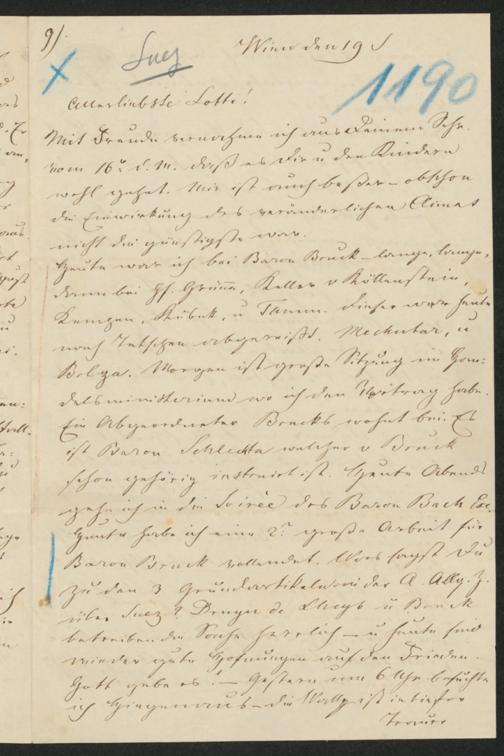 9).
Suez
Wien den 19
1190
Allerliebste Lotti!
Mit Freude vernahm ich aus Deinem Schr.
vom 16t d. M. daß es Dir u den Kindern
wohl geht. Mir ist auch beßer – obschon
die Einwirkung des veränderlichen Climas
nicht die günstigste war.
Heute war ich bei Baron Bruck – lange, lange,
dann bei Gf. Grünne, Keller v Köllenstein,
Kempen, Kübek, u Thunn. dieser war heute
nach Tetschen abgereißt. Mechitar, u
Bolza. Morgen ist große Sitzung im Han-
delsministerium wo ich den Vortrag habe.
Ein Abgeordneter Brucks wohnt bei. Es
ist Baron Schlechta welcher v Bruck
schon gehörig instruirt ist. Heute Abends
geh ich in die Soirée des Baron Bach Exc.
Heute habe ich eine 2t große Arbeit für
Baron Bruck vollendet. Was sagst Du
zu den 3 Grundartikeln in der A. Allg. Z.
über Suez? Drouyn de Lhuys u Bruck
betreiben die Sache herrlich – u heute sind
wieder gute Hofnungen auf den Frieden.
Gott gebe es! – Gestern um 6 Uhr besuchte
ich – die Wally ist in tiefer
Trauer